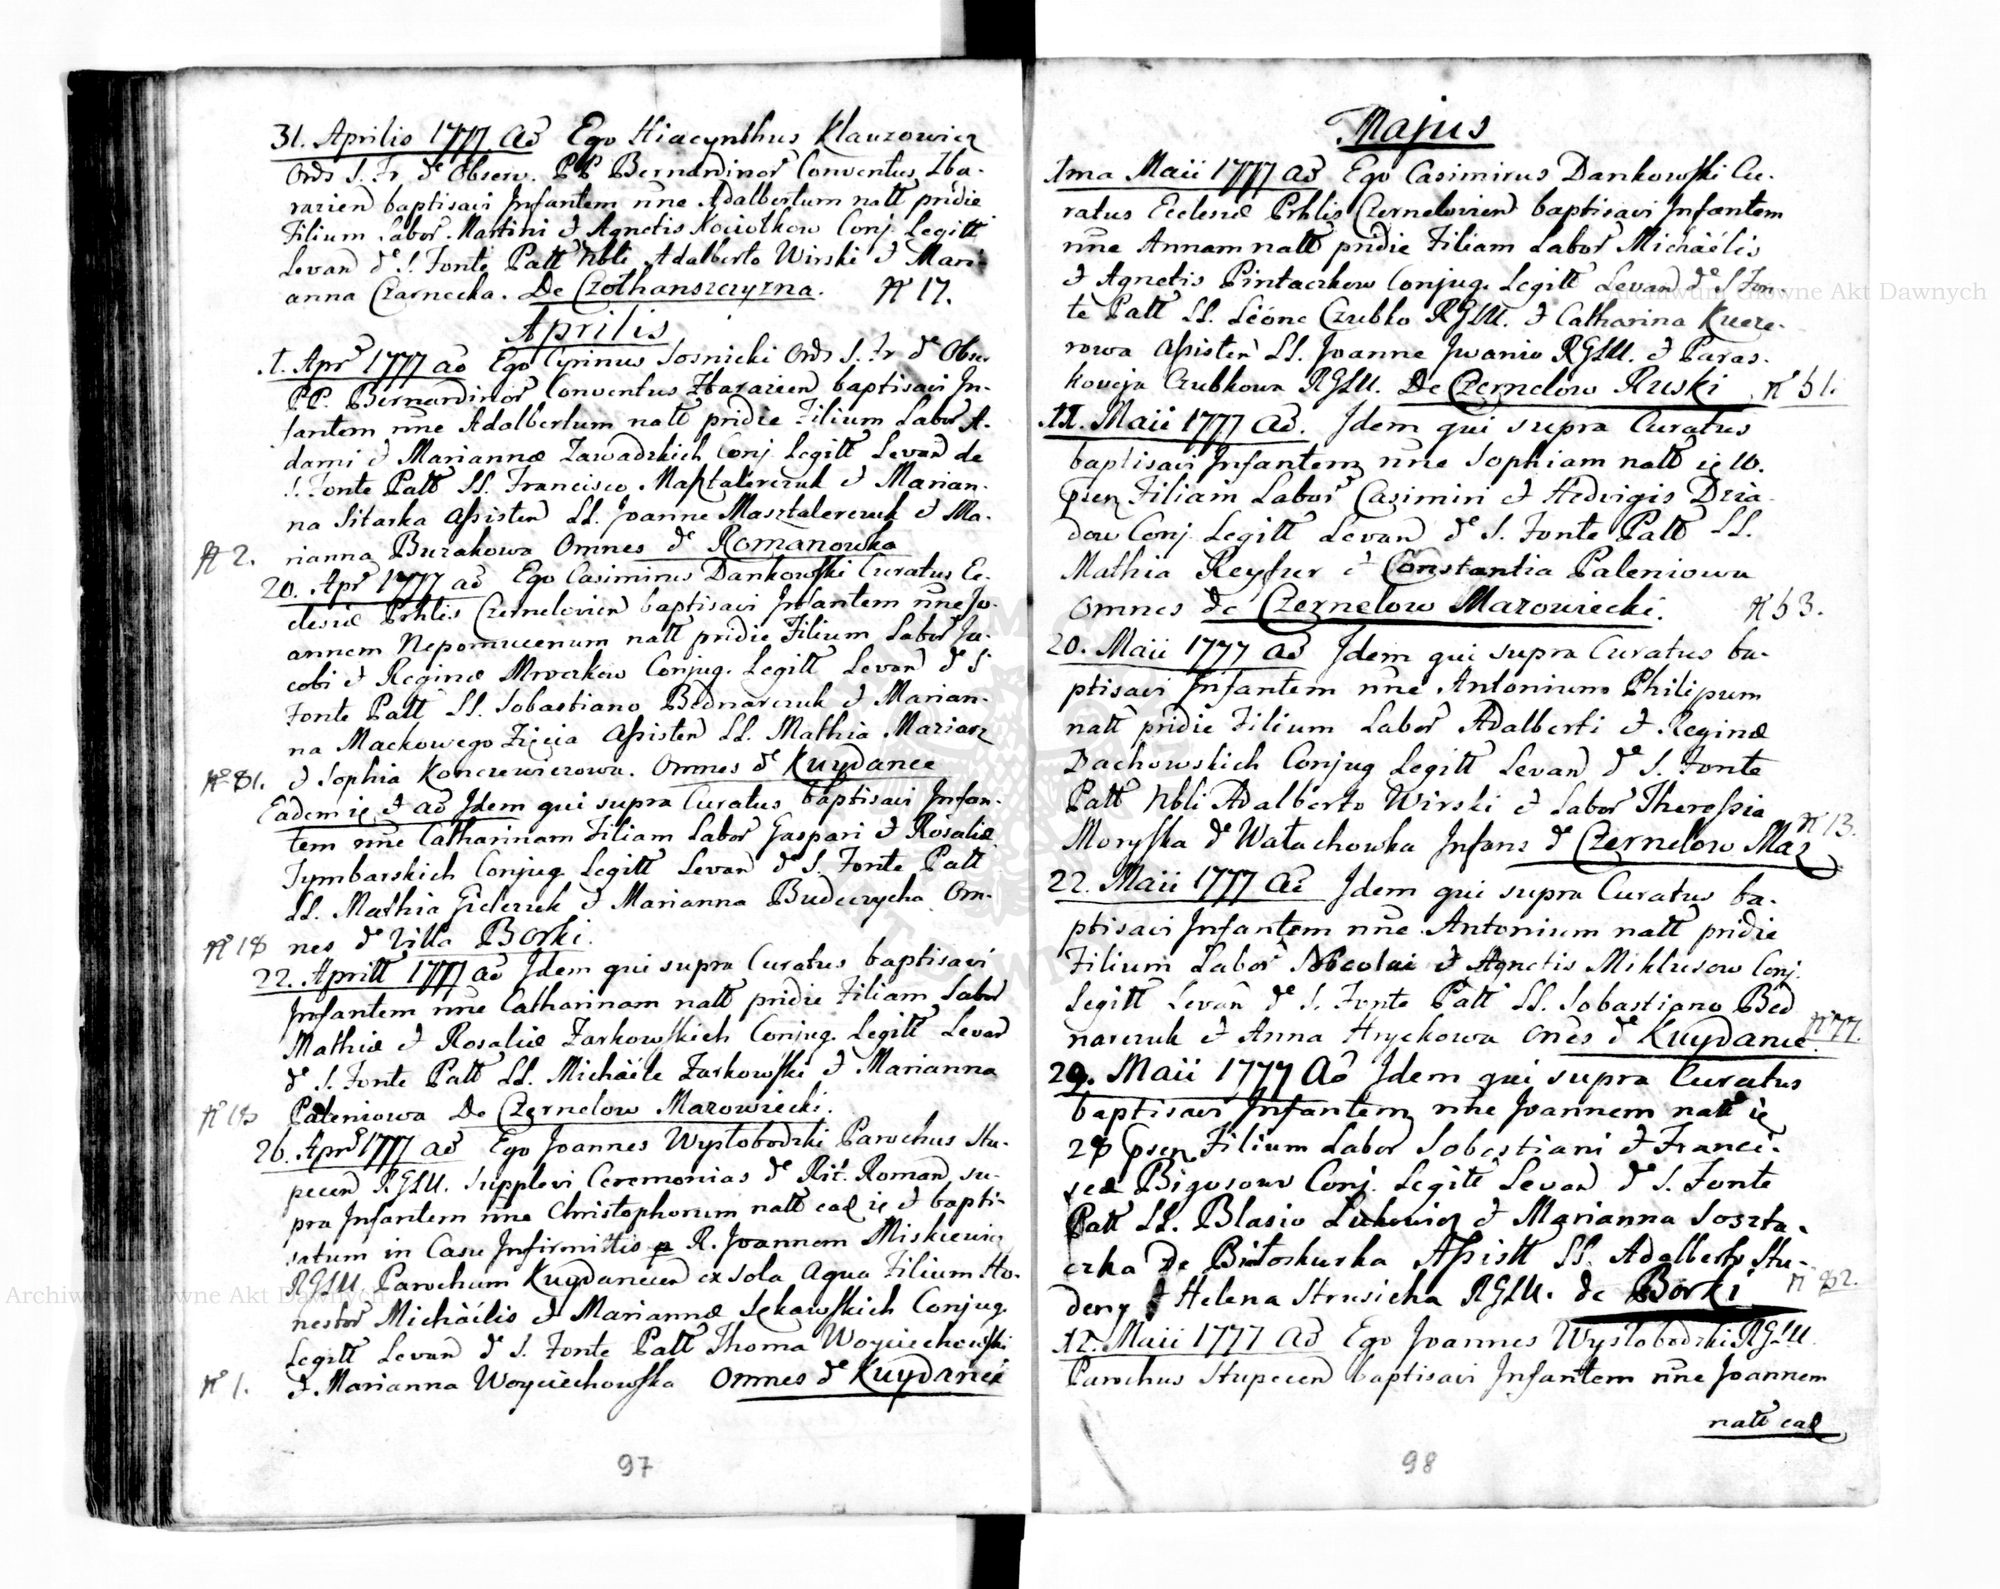 31. Aprilis 1777 Aō Ego Hiacynthus Klauzowicz
Ords S. Fr. de Observ. PP Bernardinor Conventus Zba-
razien baptisavi Infantem nn̄e Adalbertum natt pridie
Filium Labor. Martini & Agnetis Kociołkow Conj. Legitt
Levan de S. Fonte Patt Nbli Adalberto Wirski & Mari-
anna Czarnecka. De Czołhanszczyzna. N 17.
Aprilis
1. Apr 1777 aō Ego Cyrinus Sosnicki Ords S. Fr de Obser
PP. Bernardinor Conventus Zbarazien baptisavi In-
fantem nn̄e Adalbertum natt pridie Filium Labor A-
dami & Mariannæ Zawadzkich Conj Legitt Levan de
S. Fonte Patt LL. Francisco Masztalerczuk & Marian-
na Sitarka Assisten LL. Joanne Masztalerczuk & Ma-
N 2. rianna Burakowa Omnes de Romanowka
20. Apr 1777 aō Ego Casimirus Dankowski Curatus Ec-
clesiæ Prhlis Czernelovien baptisavi Infantem nn̄e Jo-
annem Nepomucenum natt pridie Filium Labor Ja-
cobi & Reginæ Mroczkow Conjug. Legitt Levan de S
Fonte Patt LL. Sobastiano Bednarczuk & Marian-
na Mackowego Zięcia Assisten LL. Mathia Maziarz
No 81. & Sophia Konczewiczowa. Omnes de Kuydance
Eadem ię & aō Idem qui supra Curatus baptisavi Infan-
tem nn̄e Catharinam Filiam Labor Gaspari & Rosaliæ
Tymbarskich Conjug Legitt Levan de S. Fonte Patt
LL. Mathia Gielczuk & Marianna Budeczycha Om-
No 18 nes de Villa Borki.
22. Aprill 1777 aō Idem qui supra Curatus baptisavi
Infantem nn̄e Catharinam natt pridie Filiam Labor
Mathiæ & Rosaliæ Zarkowskich Conjug. Legitt Levan
de S. Fonte Patt LL. Michaële Zarkowski & Marianna
No 18 Paleniowa De Czernelow Mazowiecki.
26. Apr 1777 aō Ego Joannes Wysłobodzki Parochus Stu-
pecen RGLU. Supplevi Ceremonias de Rit. Roman su-
pra Infantem nn̄e Christophorum natt ead ię & bapti-
satum in Casu Infirmittis p R. Joannem Miskiewicz
RGLU Parochum Kuydanecen ex sola Aqua Filium Ho-
nestor Michäelis & Mariannæ Sękawskich Conjug.
Legitt Levan de S. Fonte Patt Thoma Woyciechowski
No 1. & Marianna Woyciechowska Omnes de Kuydance
97
Majus
1ma Maii 1777 aō Ego Casimirus Dankowski Cu-
ratus Ecclesiæ Prhlis Czernelovien baptisavi Infantem
nn̄e Annam natt pridie Filiam Labor Michäelis
& Agnetis Pintaczkow Conjug. Legitt Levan de S Fon-
te Patt LL. Leóne Czubko RGLU. & Catharina Kucze-
rowa Assisten LL. Joanne Iwaniw RGLU. & Paras-
koveja Czubkowa RGLU. De Czernelow Ruski N 51.
11. Maii 1777 Aō. Idem qui supra Curatus
baptisavi Infantem nn̄e Sophiam natt ię 10.
psen Filiam Labor Casimiri & Hedvigis Dzia-
dow Conj Legitt Levan de S. Fonte Patt LL.
Mathia Reyfur & Constantia Paleniowa
Omnes de Czernelow Mazowiecki. N 53.
20. Maii 1777 aō Idem qui supra Curatus ba-
ptisavi Infantem nn̄e Antonium Philipum
natt pridie Filium Labor Adalberti & Reginæ
Dachowskich Conjug Legitt Levan de S. Fonte
Patt Nbli Adalberto Wirski & Labor Theressia
Moryska de Wałachowka Infans de Czernelow Maz N 13.
22. Maii 1777 Aō Idem qui supra Curatus ba-
ptisavi Infantem nn̄e Antonium natt pridie
Filium Labor Nicolai & Agnetis Miklusow Conj.
Legitt Levan de S. Fonte Patt LL. Sobastiano Bed
narczuk & Anna Hryckowa Onēs de Kuydance. N 77.
29. Maii 1777 Aō Idem qui supra Curatus
baptisavi Infantem nn̄e Joannem natt ię
28 psen Filium Labor Sobestiani & Franci-
scæ Bigosow Conj. Legitt Levan de S. Fonte
Patt LL. Blasio Lukowicz & Marianna Soszta-
czka De Białoskurka Assistt LL. Adalberto Stu-
deny & Helena Strusicha RGLU. de Borki N 82.
12. Maii 1777 Aō Ego Joannes Wysłobodzki RGLU
Parochus Stupecen baptisavi Infantem nn̄e Joannem
natt ead
98
Archiwum Główne Akt Dawnych
Archiwum Główne Akt Dawnych